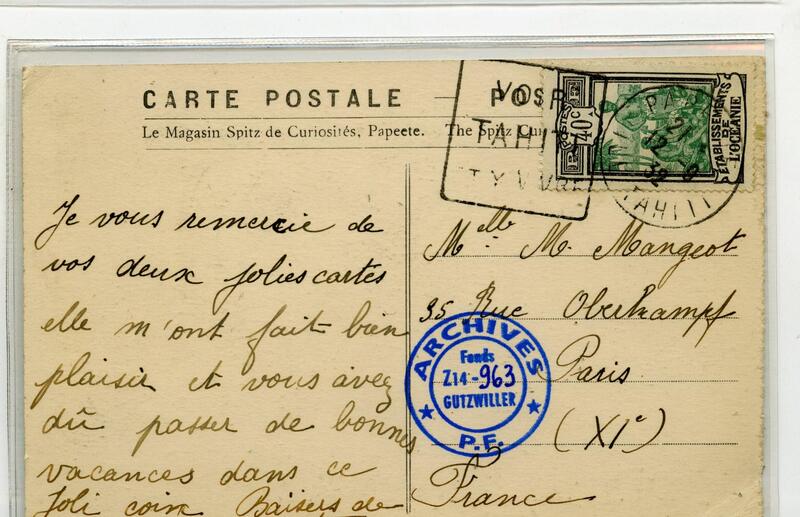 CARTE POSTALE — POS
Le Magasin Spitz de Curiosités, Papeete. The Spitz Cu
VO
TAHITI
T Y VIVRE
POSTES
40c
RF
ETABLISSEMENTS
DE
L'OCEANIE
21
12-9
32
TAHITI
Je vous remercie de
vos deux jolies cartes
elle m'ont fait bien
plaisir et vous avez
dû passer de bonnes
vacances dans ce
Joli coin Baisers de
Melle M. Mangeot
35 Rue Oberkampf
Paris
(XIe)
France
ARCHIVES
Fonds
Z14-963
GUTZWILLER
P.F.